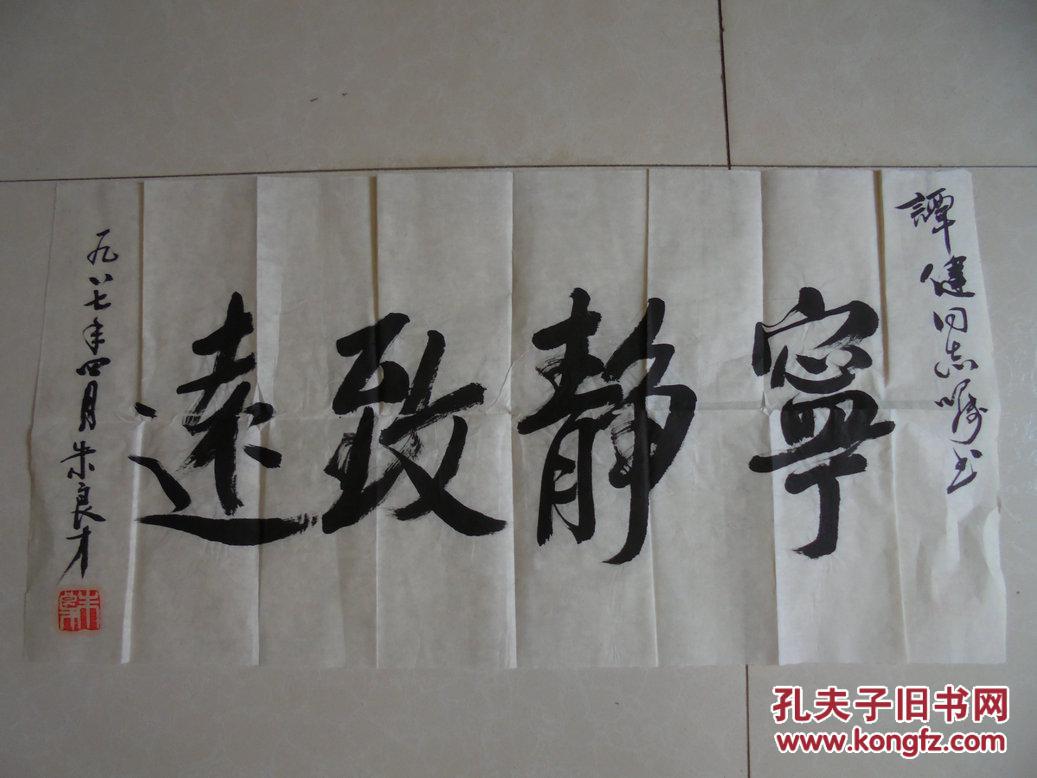 譚健同志嘱书
寧靜致遠
一九八七年四月朱良才
孔夫子旧书网
www.kongfz.com